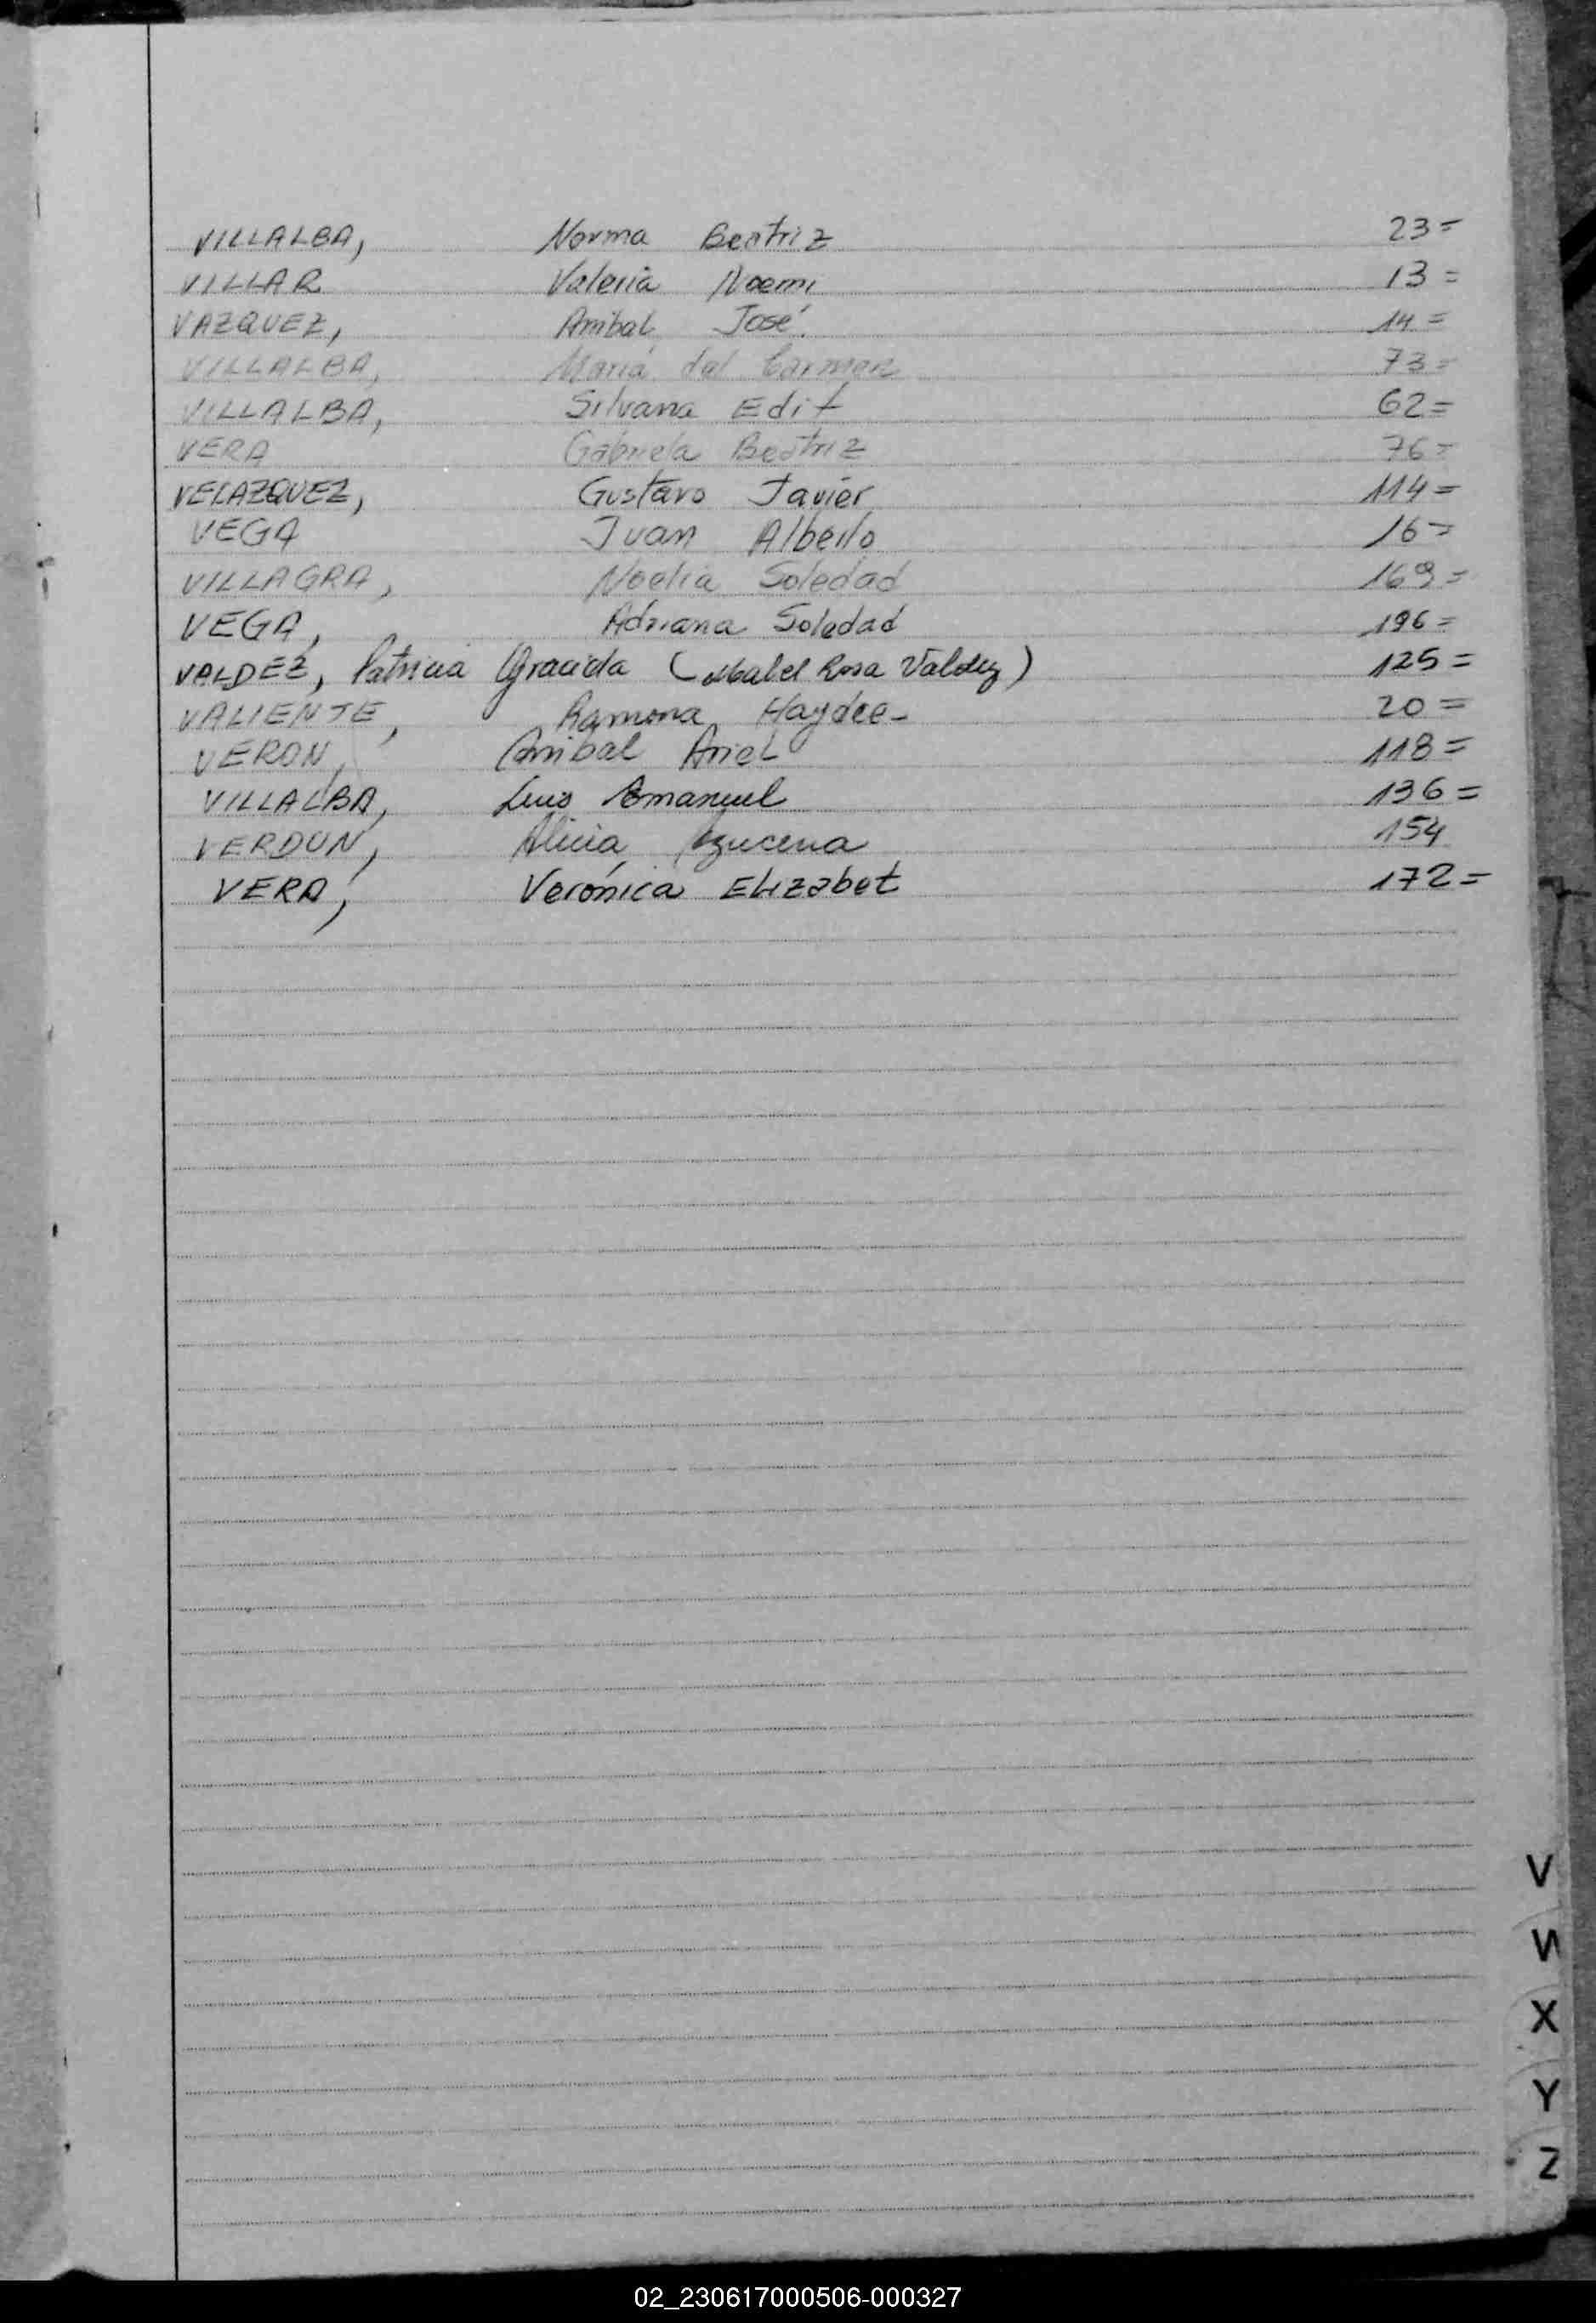 VILLALBA, Norma Beatriz 23=
VILLAR Valeria Noemi 13=
VAZQUEZ, Anibal José 14=
VILLALBA, María del Carmen 73=
VILLALBA, Silvana Edit 62=
VERA Gabriela Beatriz 76=
VELAZQUEZ, Gustavo Javier 114=
VEGA Juan Alberto 16=
VILLAGRA, Noelia Soledad 169=
VEGA, Adriana Soledad 196=
VALDEZ, Patricia Graciela (Mabel Rosa Valdez) 125=
VALIENTE, Ramona Haydee- 20=
VERON, Anibal Ariel 118=
VILLALBA, Luis Emanuel 136=
VERDUN, Alicia Azucena 154
VERA, Verónica Elizabet 172=
V
W
X
Y
Z
02_230617000506-000327